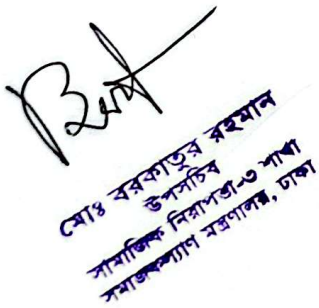 মোঃ বরকাতুর রহমান
উপসচিব
সামাজিক নিরাপত্তা-৩ শাখা
সমাজকল্যাণ মন্ত্রণালয়, ঢাকা